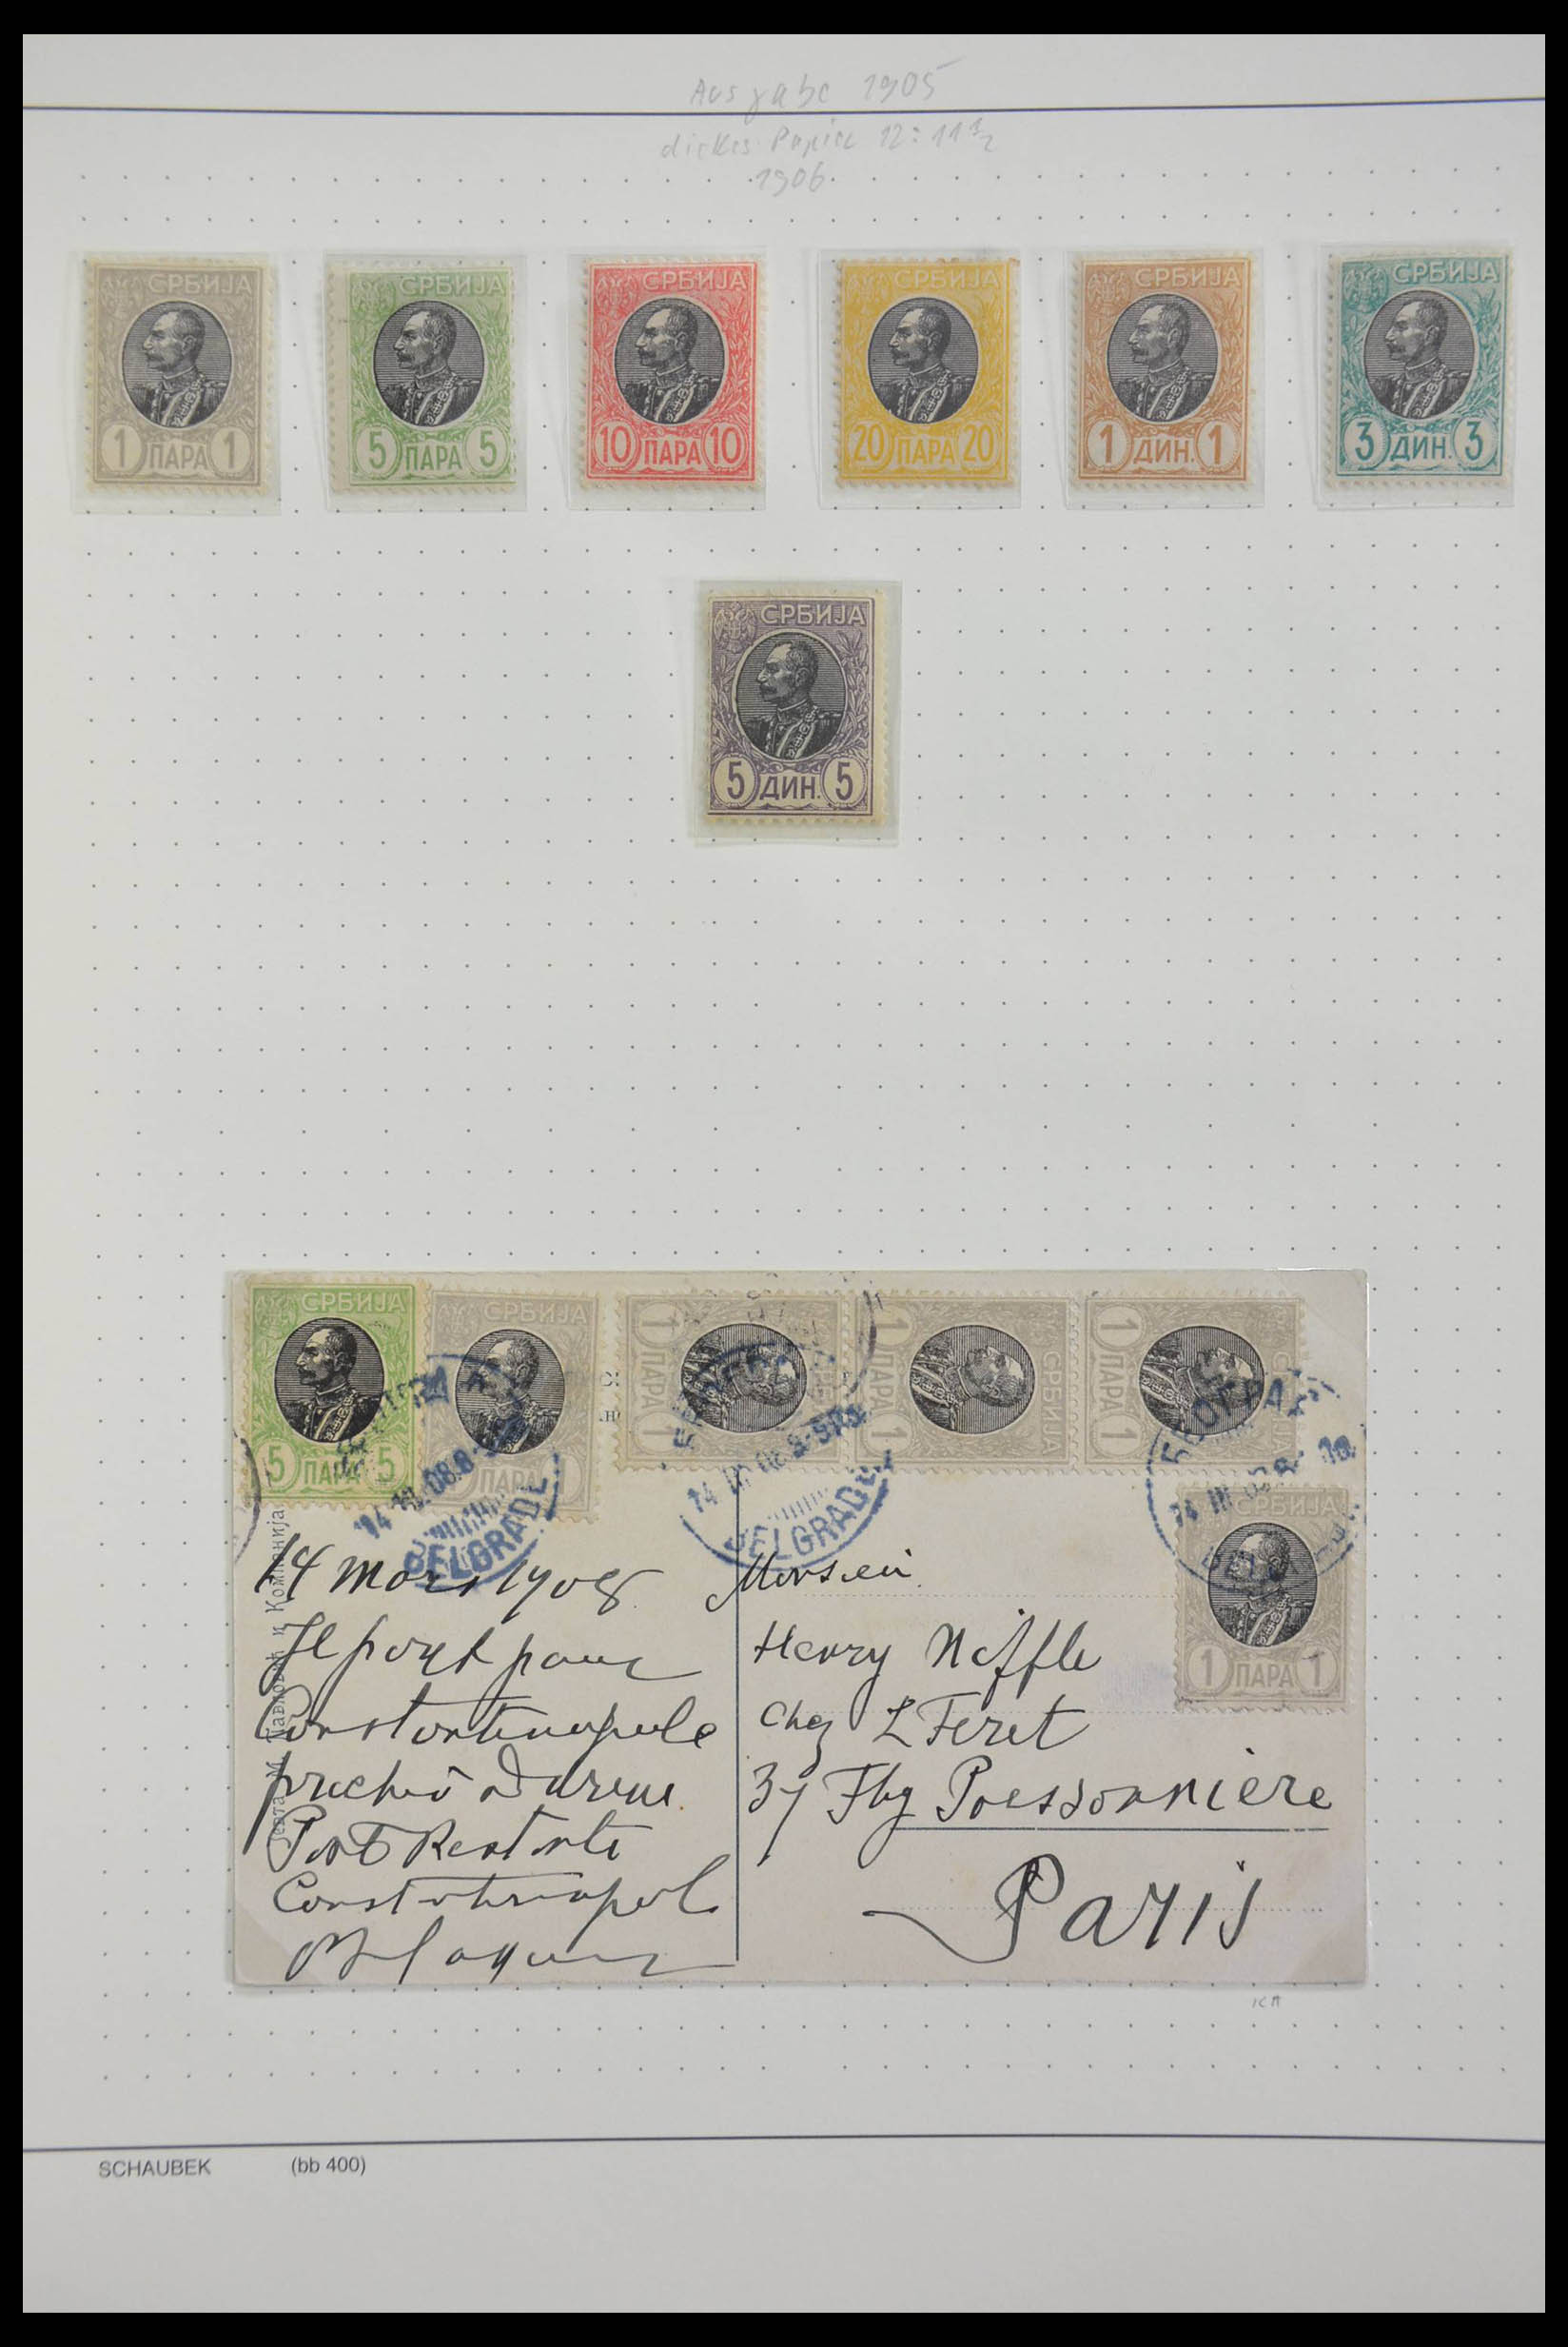 Ausgabe 1905
dickes Papier 12:11½
1906
СРБИЈА
1 ПАРА 1
СРБИЈА
5 ПАРА 5
СРБИЈА
10 ПАРА 10
СРБИЈА
20 ПАРА 20
СРБИЈА
1 ДИН. 1
СРБИЈА
3 ДИН. 3
СРБИЈА
5 ДИН. 5
СРБИЈА
5 ПАРА 5
СРБИЈА
1 ПАРА 1
1 ПАРА 1
СРБИЈА
1 ПАРА 1
СРБИЈА
1 ПАРА 1
СРБИЈА
1 ПАРА 1
14 III 08.8-
BELGRADE
14 III 08 8-9
BELGRADE
БЕОГРАД
14 III 08
и Компанија
14 Mars 1908
Constantinople
Post Restante
Constantinopel
Monsieur
Henry Niffle
chez L Feret
37 Fbg Poissonniere
Paris
KA
SCHAUBEK (bb 400)